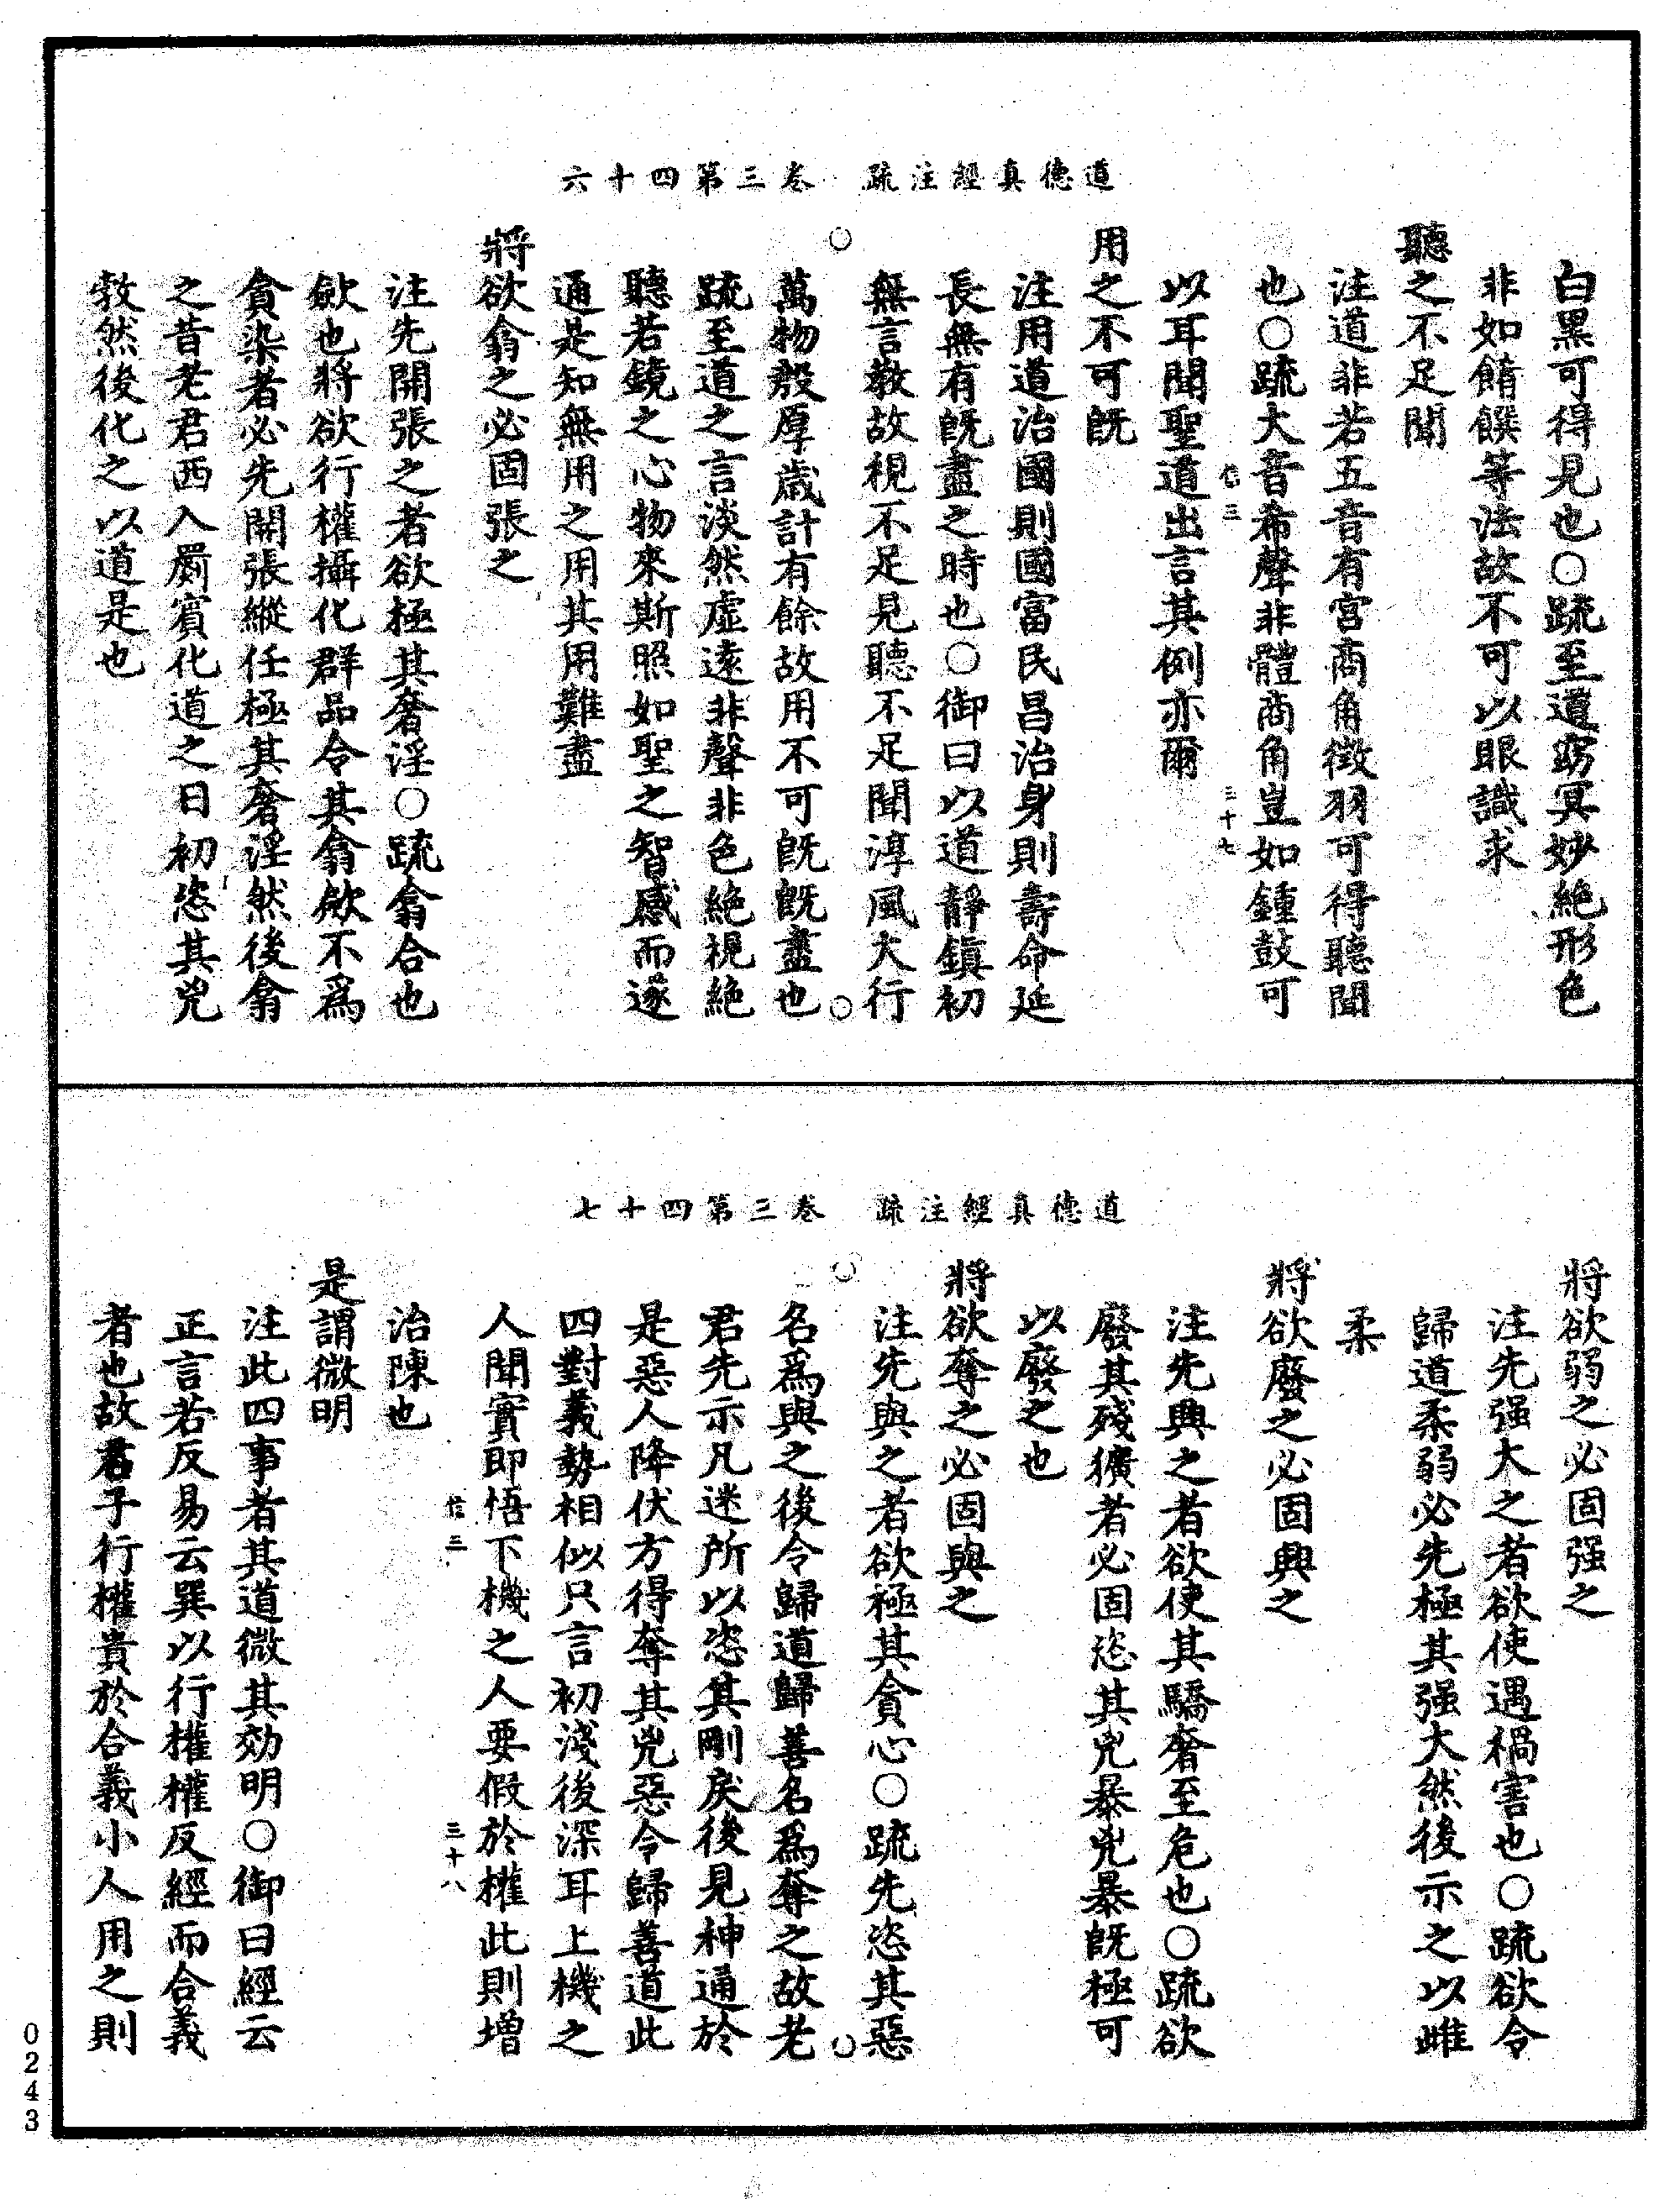 道德真經注疏　卷三第四十六
白黑可得見也〇疏至道窈冥妙絶形色
非如餚饌等法故不可以眼識求
聽之不足聞
注道非若五音有宮商角徵羽可得聽聞
也〇疏大音希聲非體商角豈如鍾鼓可
信三　三十七
以耳聞聖道出言其例亦爾
用之不可旣
注用道治國則國富民昌治身則壽命延
長無有旣盡之時也〇御曰以道靜鎮初
無言教故視不足見聽不足聞淳風大行
萬物殷厚歲計有餘故用不可旣旣盡也
疏至道之言淡然虛遠非聲非色絶視絶
聽若鏡之心物來斯照如聖之智感而遂
通是知無用之用其用難盡
將欲翕之必固張之
注先開張之者欲極其奢淫〇疏翕合也
歛也將欲行權攝化群品令其翕歛不爲
貪染者必先開張縱任極其奢淫然後翕
之昔老君西入罽賓化道之日初恣其兇
敎然後化之以道是也
道德真經注疏　卷三第四十七
將欲弱之必固强之
注先强大之者欲使遇禍害也〇疏欲令
歸道柔弱必先極其强大然後示之以雌
柔
將欲廢之必固興之
注先興之者欲使其驕奢至危也〇疏欲
廢其殘獷者必固恣其兇暴兇暴旣極可
以廢之也
將欲奪之必固與之
注先與之者欲極其貪心〇疏先恣其惡
名爲與之後令歸道歸善名爲奪之故老
君先示凡迷所以恣其剛戾後見神通於
是惡人降伏方得奪其兇惡令歸善道此
四對義勢相似只言初淺後深耳上機之
人聞實即悟下機之人要假於權此則增
信三　三十八
治陳也
是謂微明
注此四事者其道微其効明〇御曰經云
正言若反易云巽以行權權反經而合義
者也故君子行權貴於合義小人用之則
0243